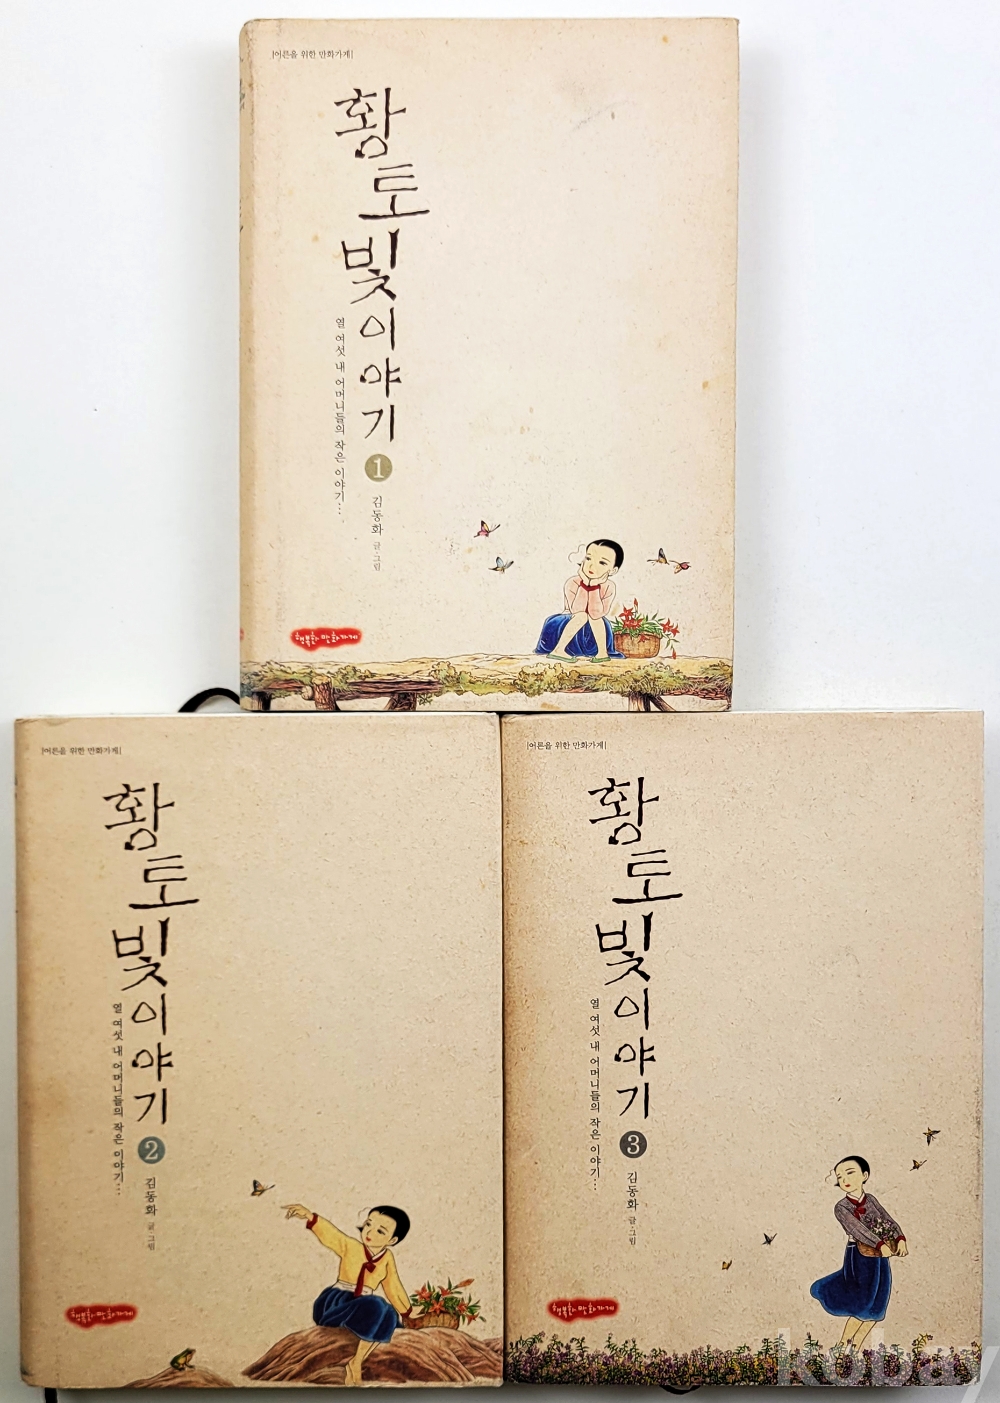 |어른을 위한 만화가게|
황토빛이야기
열 여섯 내 어머니들의 작은 이야기…
1
김동화 글·그림
행복한 만화가게
|어른을 위한 만화가게|
황토빛이야기
열 여섯 내 어머니들의 작은 이야기…
2
김동화 글·그림
행복한 만화가게
|어른을 위한 만화가게|
황토빛이야기
열 여섯 내 어머니들의 작은 이야기…
3
김동화 글·그림
행복한 만화가게
kobay